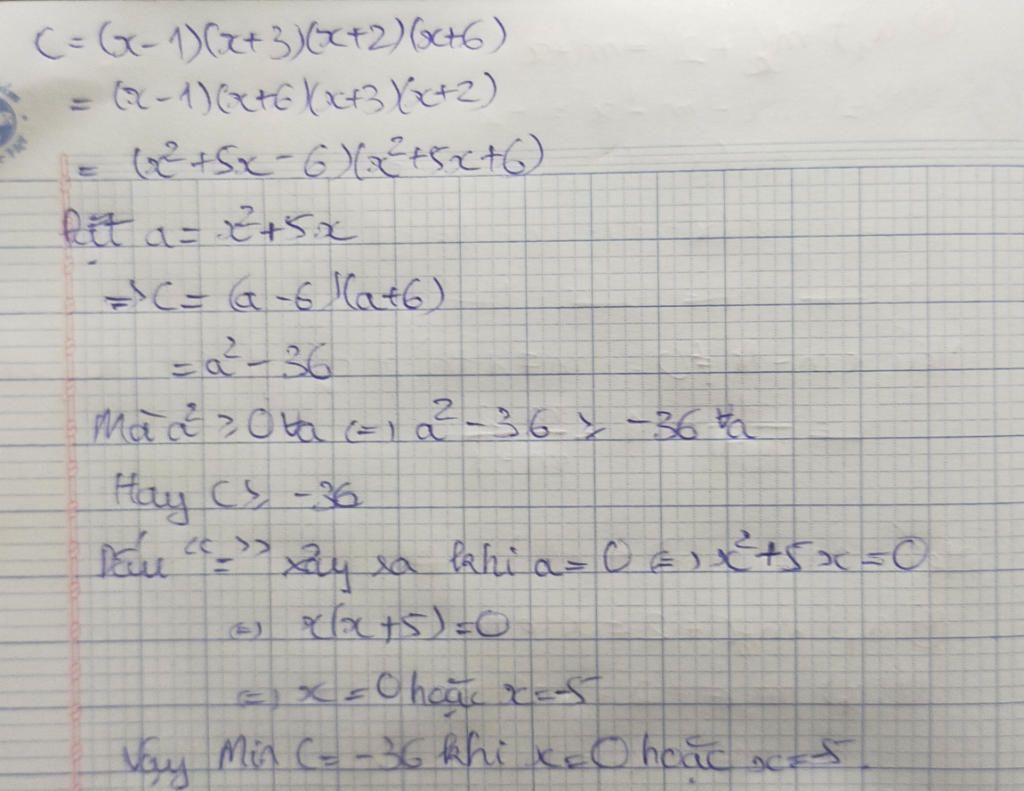 C = (x-1)(x+3)(x+2)(x+6)
= (x-1)(x+6)(x+3)(x+2)
= (x²+5x-6)(x²+5x+6)
Đặt a = x²+5x
=> C = (a-6)(a+6)
= a² - 36
Mà a² ≥ 0 ∀a <=> a² - 36 ≥ -36 ∀a
Hay C ≥ -36
Dấu "=" xảy xa khi a = 0 <=> x²+5x = 0
<=> x(x+5) = 0
<=> x = 0 hoặc x = -5
Vậy Min C = -36 khi x = 0 hoặc x = -5.